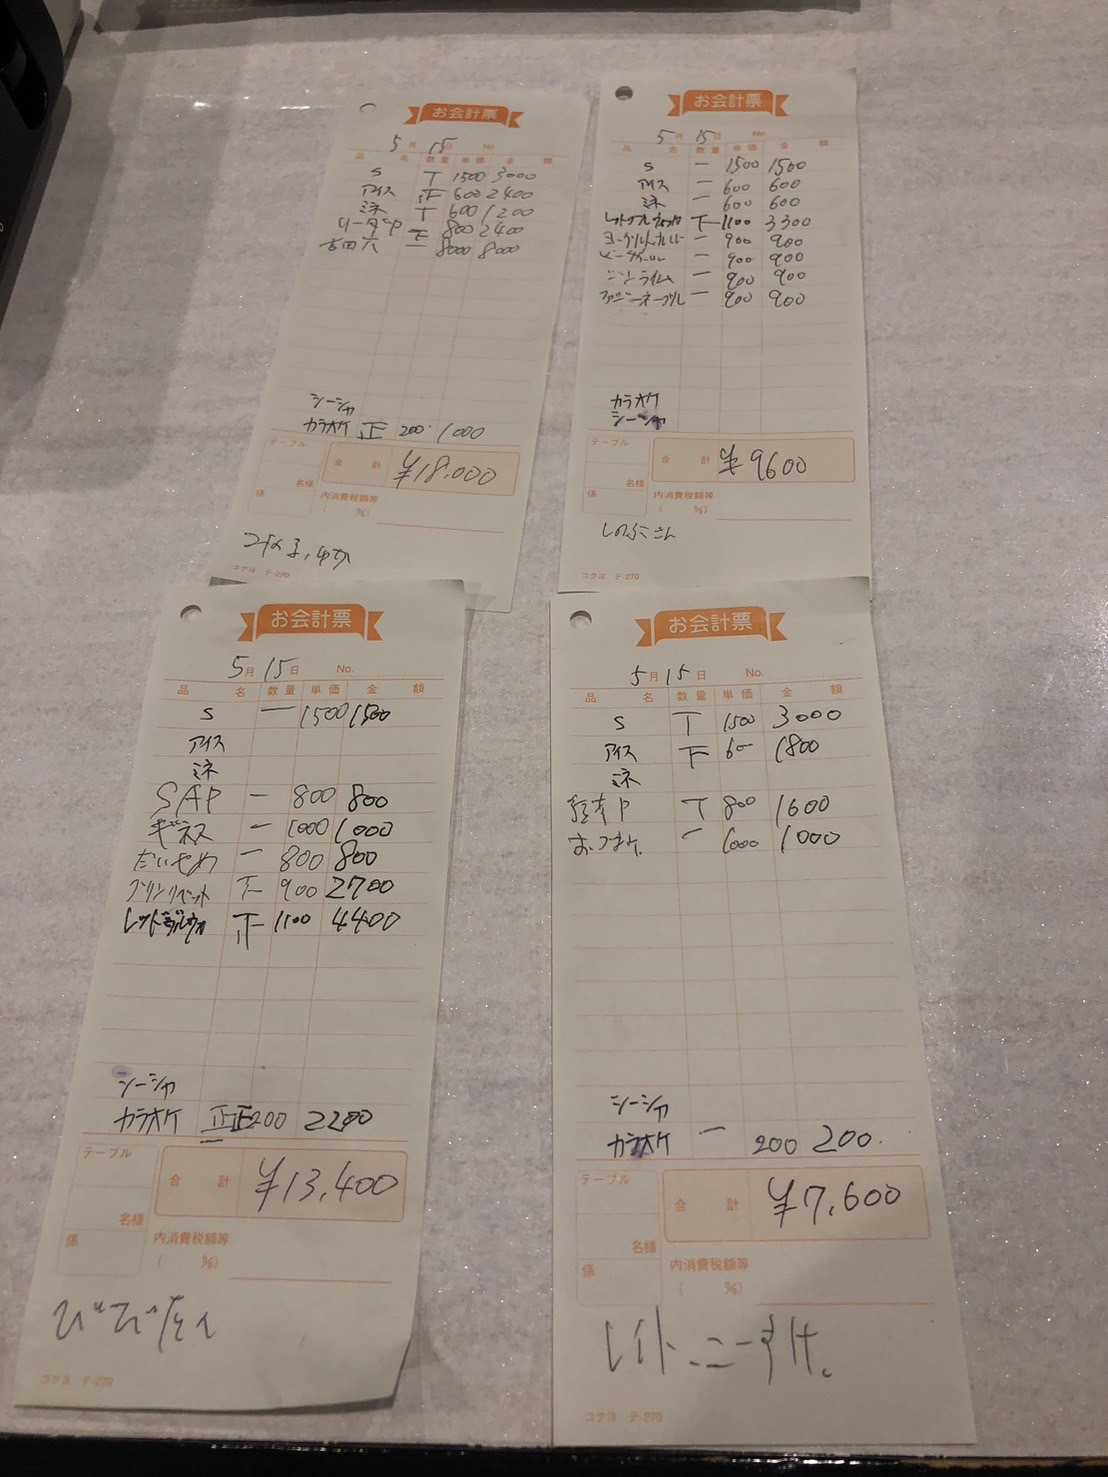 お会計票
5月 15日 No.
品 名 数量 単価 金 額
S T 1500 3000
アイス 正 600 2400
ミネ T 600 1200
リーダーP 下 800 2400
吉四六 一 8000 8000
シーシャ
カラオケ 正 200 1000
テーブル
合 計 ¥18,000
名様
係 内消費税額等
( %)
コクヨ テ-270
お会計票
5月 15日 No.
品 名 数量 単価 金 額
S 一 1500 1500
アイス 一 600 600
ミネ 一 600 600
レッドブルウォッカ 下 1100 3300
ヨーグルト 一 900 900
一 900 900
ジンライム 一 900 900
ファジーネーブル 一 900 900
カラオケ
シーシャ
テーブル
合 計 ¥9600
名様
係 内消費税額等
( %)
しのぶこさん
コクヨ テ-270
お会計票
5月 15日 No.
品 名 数量 単価 金 額
S 一 1500 1500
アイス
ミネ
SAP 一 800 800
ギネス 一 1000 1000
だいやめ 一 800 800
グリンリベット 下 900 2700
レッドブルウォ 正 1100 4400
シーシャ
カラオケ 正正一 200 2200
テーブル
合 計 ¥13,400
名様
係 内消費税額等
( %)
コクヨ テ-270
お会計票
5月 15日 No.
品 名 数量 単価 金 額
S T 1500 3000
アイス 下 600 1800
ミネ
T 800 1600
おつまみ 一 1000 1000
シーシャ
カラオケ 一 200 200.
テーブル
合 計 ¥7,600
名様
係 内消費税額等
( %)
レイト、こーすけ。
コクヨ テ-270